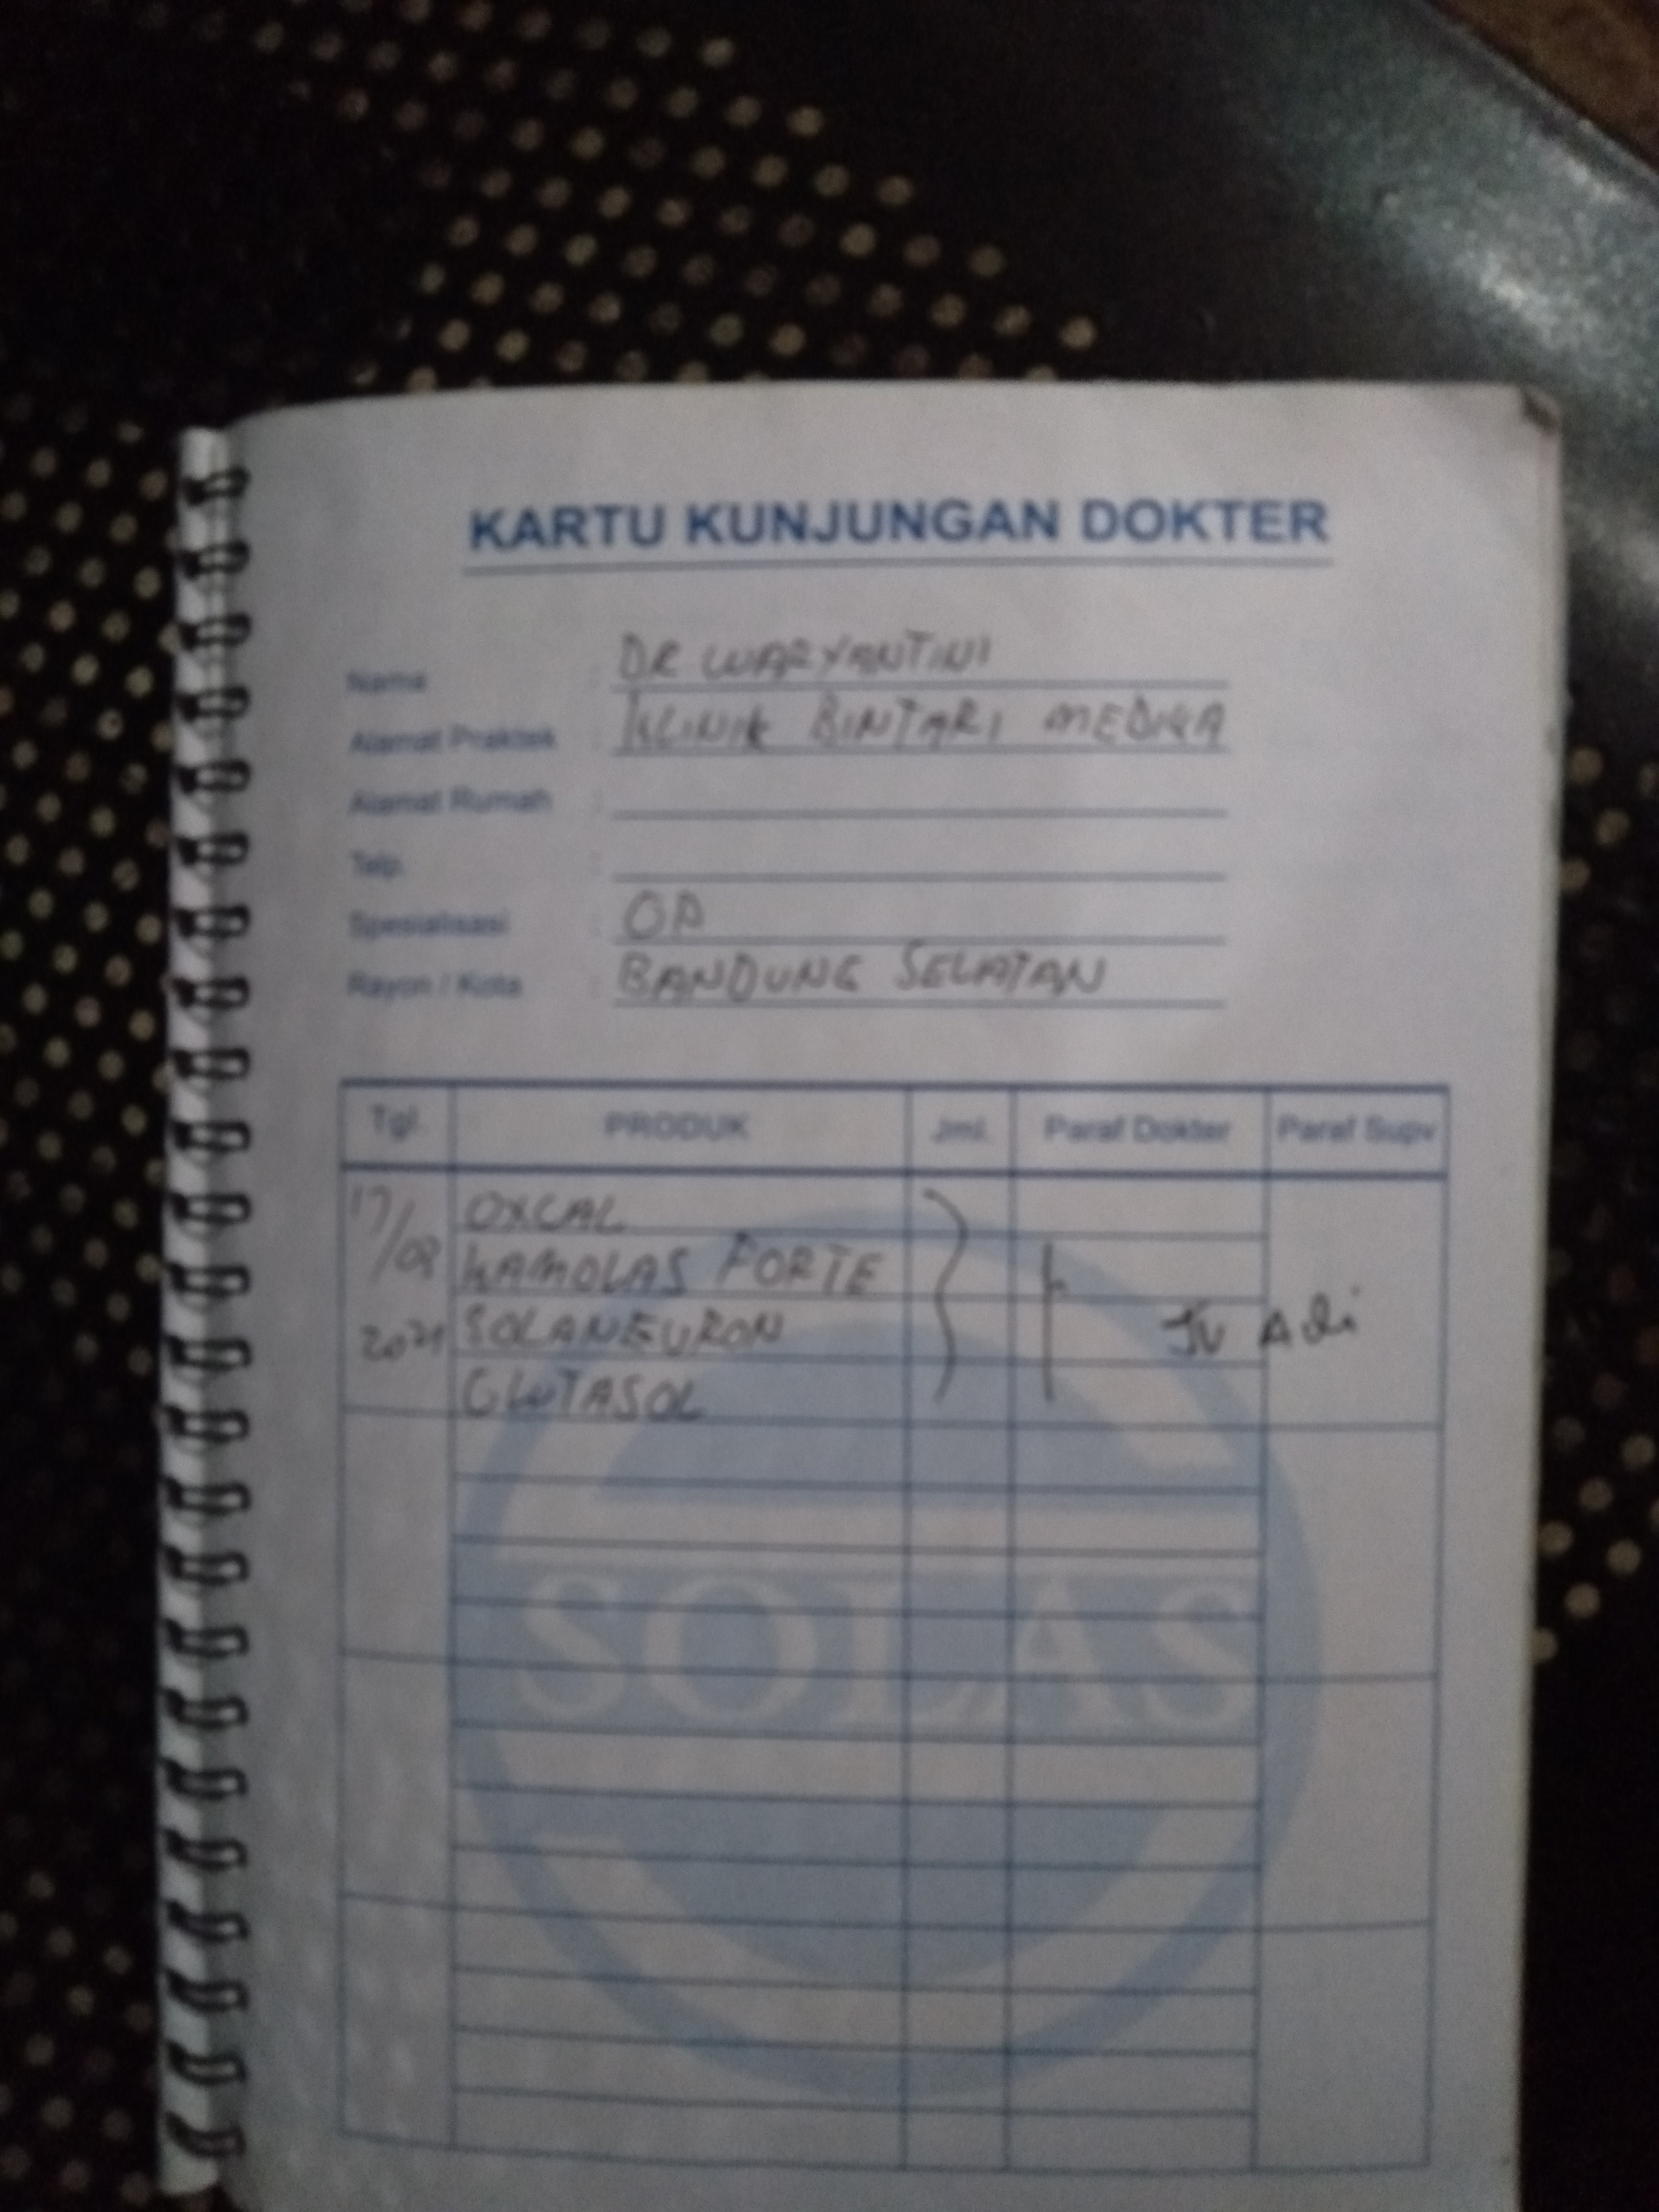 KARTU KUNJUNGAN DOKTER
Nama : DR WARYANTINI
Alamat Praktek : KLINIK BINTARI MEDIKA
Alamat Rumah :
Telp. :
Spesialisasi :
Rayon / Kota : BANDUNG SELATAN
Tgl. PRODUK Jml. Paraf Dokter Paraf Supv
17/ OXCAL
KAMOLAS FORTE
2021 SOLANEURON
GLUTASOL
Adi
SOLAS